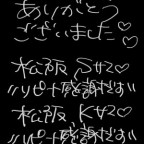 ありがとう♡
ございました♡
松阪 Sサマ♡
リピート感謝だす
松阪 Kサマ♡
リピート感謝だす